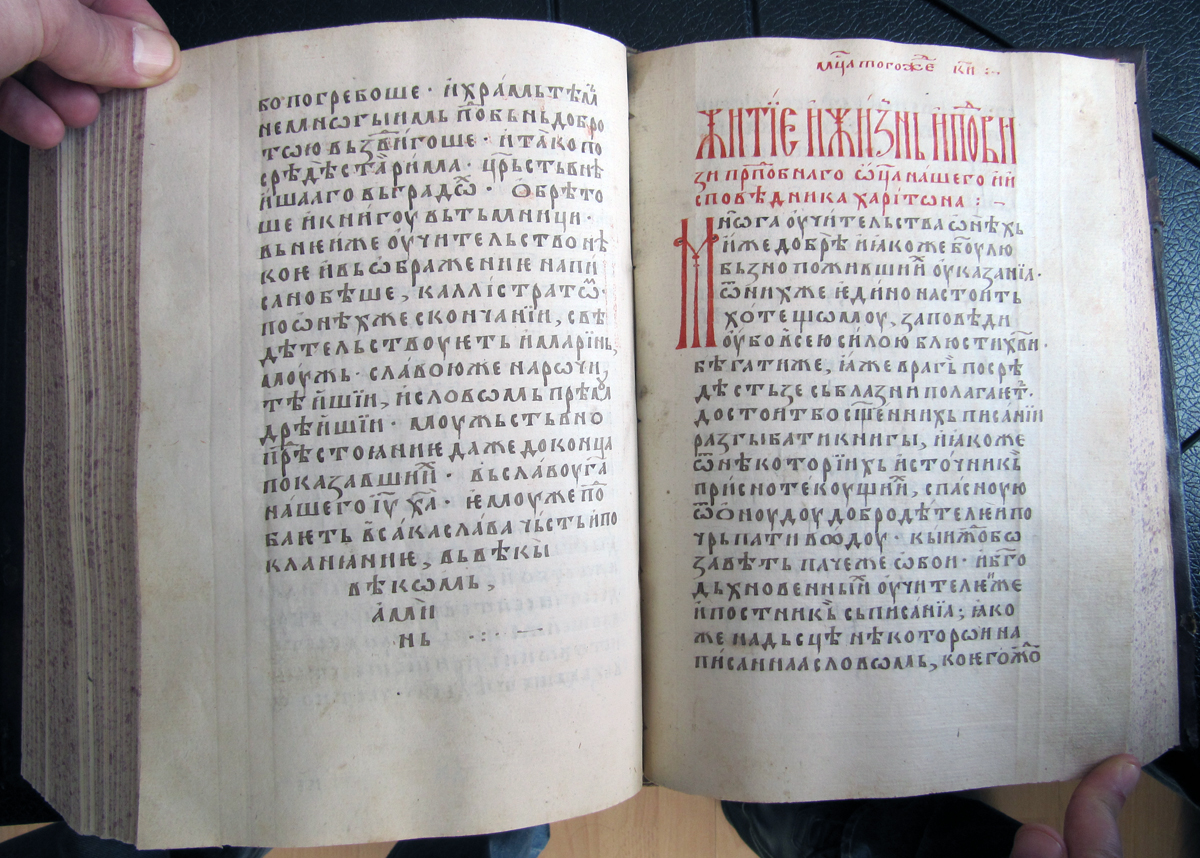 бо погребоше · и҆ храмь тѣм
не мнѡгыимь по̑ бьнь добро
тою възⷣвигоше · и҆ тако по
срѣдѣ стаⷢ҇ рима · црⷭ҇ьствꙋ не
и҆шалго вь градѡ · Обрѣто
ше и҆ книгоу вь тьмници ·
вь ню и҆же оучительство нѣ
кое и҆ вьѡбражение напи
сано бѣше, каллїстратѡⷨ ·
по ѡнѣхже скончанїи, свѣ
дѣтельствоуеть и҆ марїнь,
моужь · славою же нарочи,
тѣйшїи, и҆ словѡмь прѣмꙋ
дрѣйшїи · моужьствьно
и҆ прѣⷣстоꙗнїе даже до конца
показавшиⷯ · вь славоу га҃
нашего і҆ѵ҃ ха҃ · е҆моу же поⷣ
баеть вⷭ҇ака слава чьсть и҆ по
кланꙗнїе, вь вѣкы
вѣкѡмь,
а҆ми
нь ·:· —
мⷭ҇ца тогожⷣе ки :·
Житїе и҆ жизⷩ҇ь и҆ поⷣви
зи прⷣпⷪ҇бнаго ѡ҆ц҃а нашего и҆ и
сповѣдника харїтѡна : ~
Мнѡга оучительства ѡ нѣхь
и҆же добрѣ и҆ ꙗкоже бг҃оу лю
бьзно поживших оуказанїа ·
ѿ нихже и҆ едино настоить
хотещомоу, заповѣди
оубо всею силою блюсти хвⷭ҇и ·
бѣгати же, ꙗже врагь посрѣ
дѣ стьзе сьблазни полагаеⷮ ·
достоит бо сщ҃еннихь писанїи
разгыбати книгы, и҆ ꙗкоже
ѿ нѣкоторїихь источникь
присно текоущиⷯ, спасноую
ѿоноудоу добродѣтелю и҆ по
чрьпати водоу · кыимⷤ ѡбо
завѣть паче же ѡбои · и҆ бг҃о
дьхновенныⷯ оучителю же
и҆ постникь сьписанїа ; ꙗко
же надь сц҃е нѣкоторои на
писаннаа словѡмь, коегожⷣо